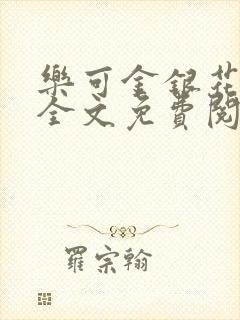 樂可金銀花
全文免費閱
羅宗翰